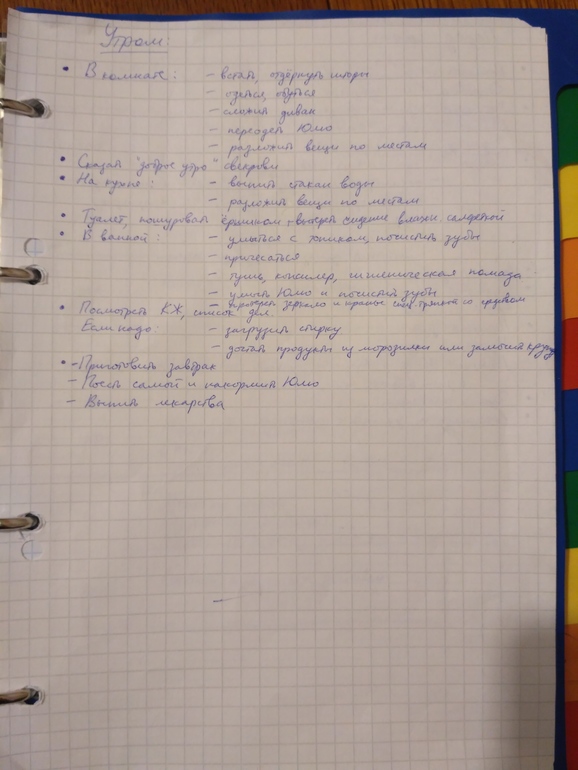 Утром:
• В комнате: – встать, отдёрнуть шторы
– одеться, обуться
– сложить диван
– переодеть Юлю
– разложить вещи по местам
• Сказать "доброе утро" свекрови
• На кухне: – выпить стакан воды
– разложить вещи по местам
• Туалет, пошуровать ёршиком, вытереть сидение влажн. салфеткой
• В ванной: – умыться с тоником, почистить зубы
– причесаться
– тушь, консилер, гигиеническая помада
– умыть Юлю и почистить зубы
– протереть зеркало и краны со
• Посмотреть КЖ, список дел.
Если надо: – загрузить стирку
– достать продукты из морозилки или замочить крупу
• – Приготовить завтрак
– Поесть самой и накормить Юлю
– Выпить лекарства